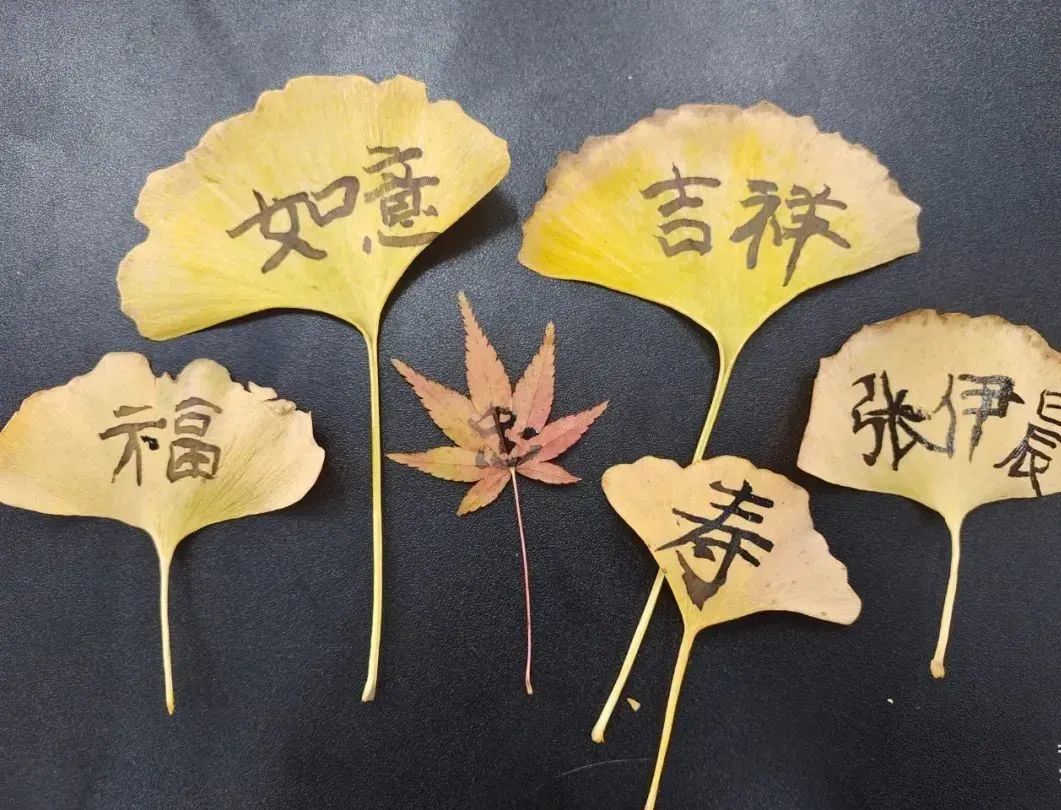 如意
吉祥
福
忠
张伊晨
寿